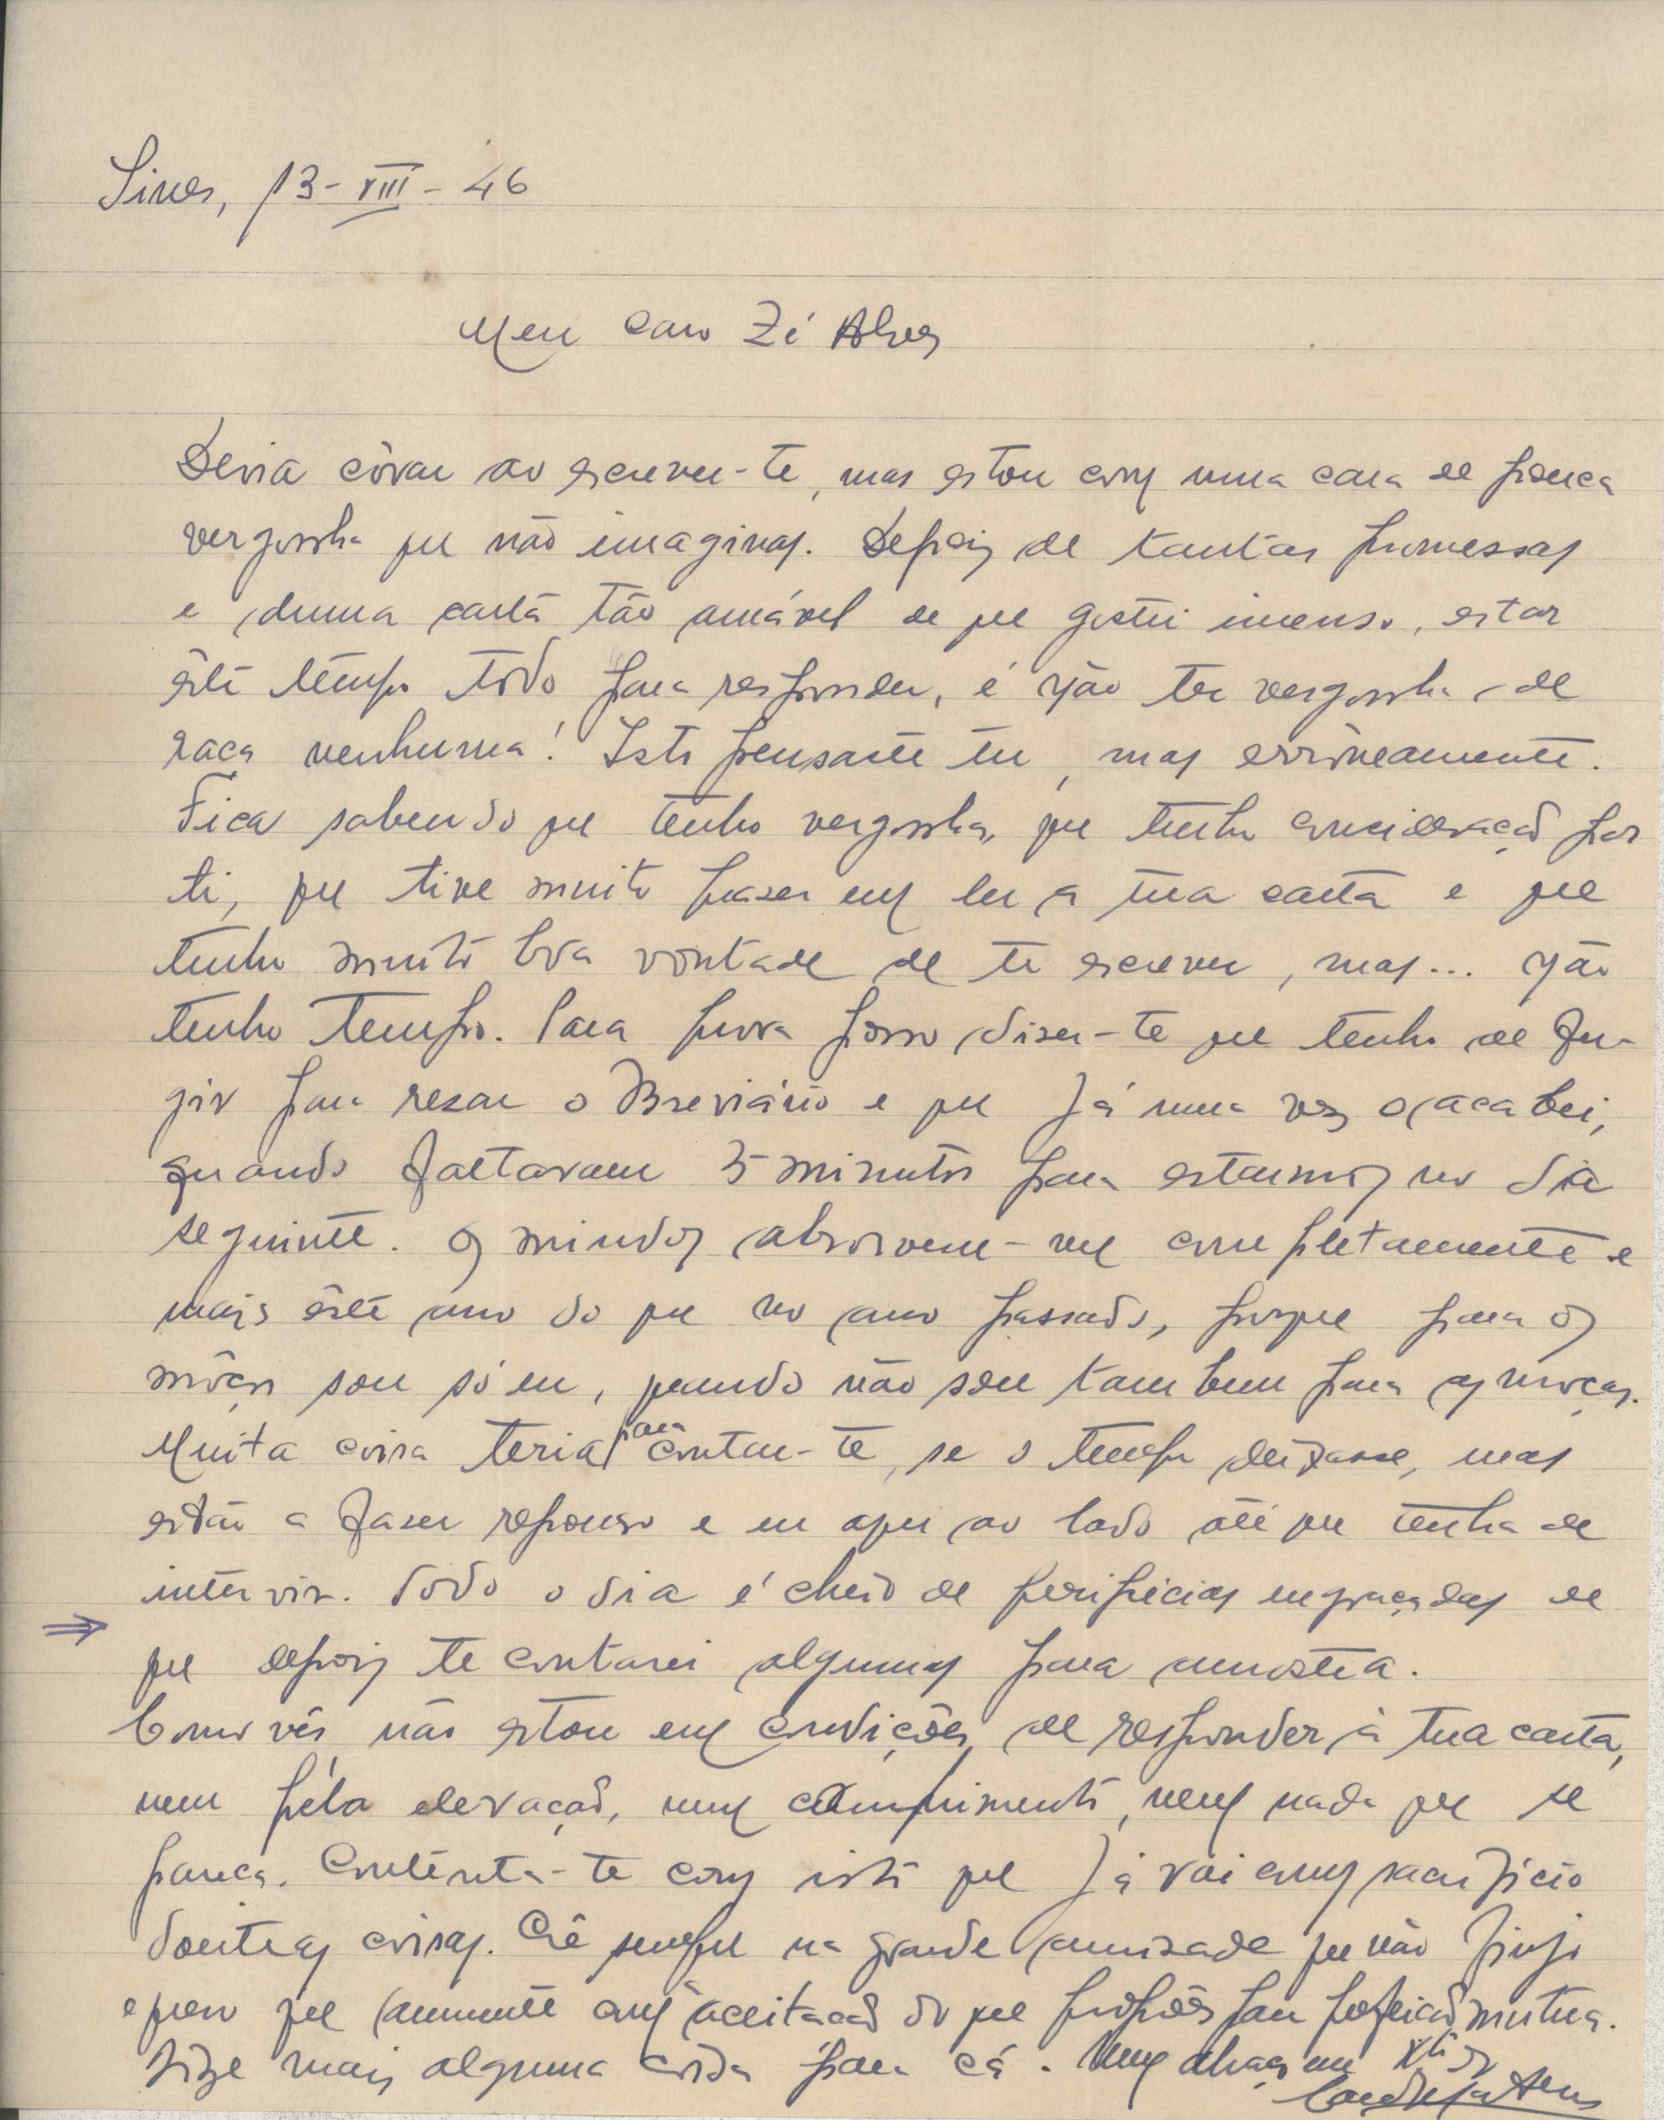 Sines, 13-VIII-46
Meu caro Zé Alves
Devia côrar ao escrever-te, mas estou com uma cara de pouca
vergonha que não imaginas. Depois de tantas promessas
e duma carta tão amável de que gostei imenso, estar
êste tempo todo para responder, é não ter vergonha de
raça nenhuma! Isto pensaste tu, mas erròneamente.
Fica sabendo que tenho vergonha, que tenho consideração por
ti, que tive muito prazer em ler a tua carta e que
tenho muito boa vontade de te escrever, mas... não
tenho tempo. Para prova posso dizer-te que tenho de fu-
gir para rezar o Breviário e que já uma vez o acabei,
quando faltavam 5 minutos para estarmos no dia
seguinte. Os miudos absorvem-me completamente e
mais êste ano do que no ano passado, porque para os
môços sou só eu, quando não sou tambem para as moças.
Muita coisa teria para contar-te, se o tempo deixasse, mas
estão a fazer repouso e eu aqui ao lado até que tenha de
intervir. Todo o dia é cheio de peripécias engraçadas de
⇒
que depois te contarei algumas para amostra.
Como vês não estou em condições de responder à tua carta,
nem pela elevação, nem comprimento, nem nada que se
pareça. Contenta-te com isto que já vai com sacrifício
doutras coisas. Crê sempre na grande amizade que não finjo
e quero que aumente com aceitação do que propões para perfeição mutua.
Dize mais alguma coisa para cá. Um abraço em Xto do